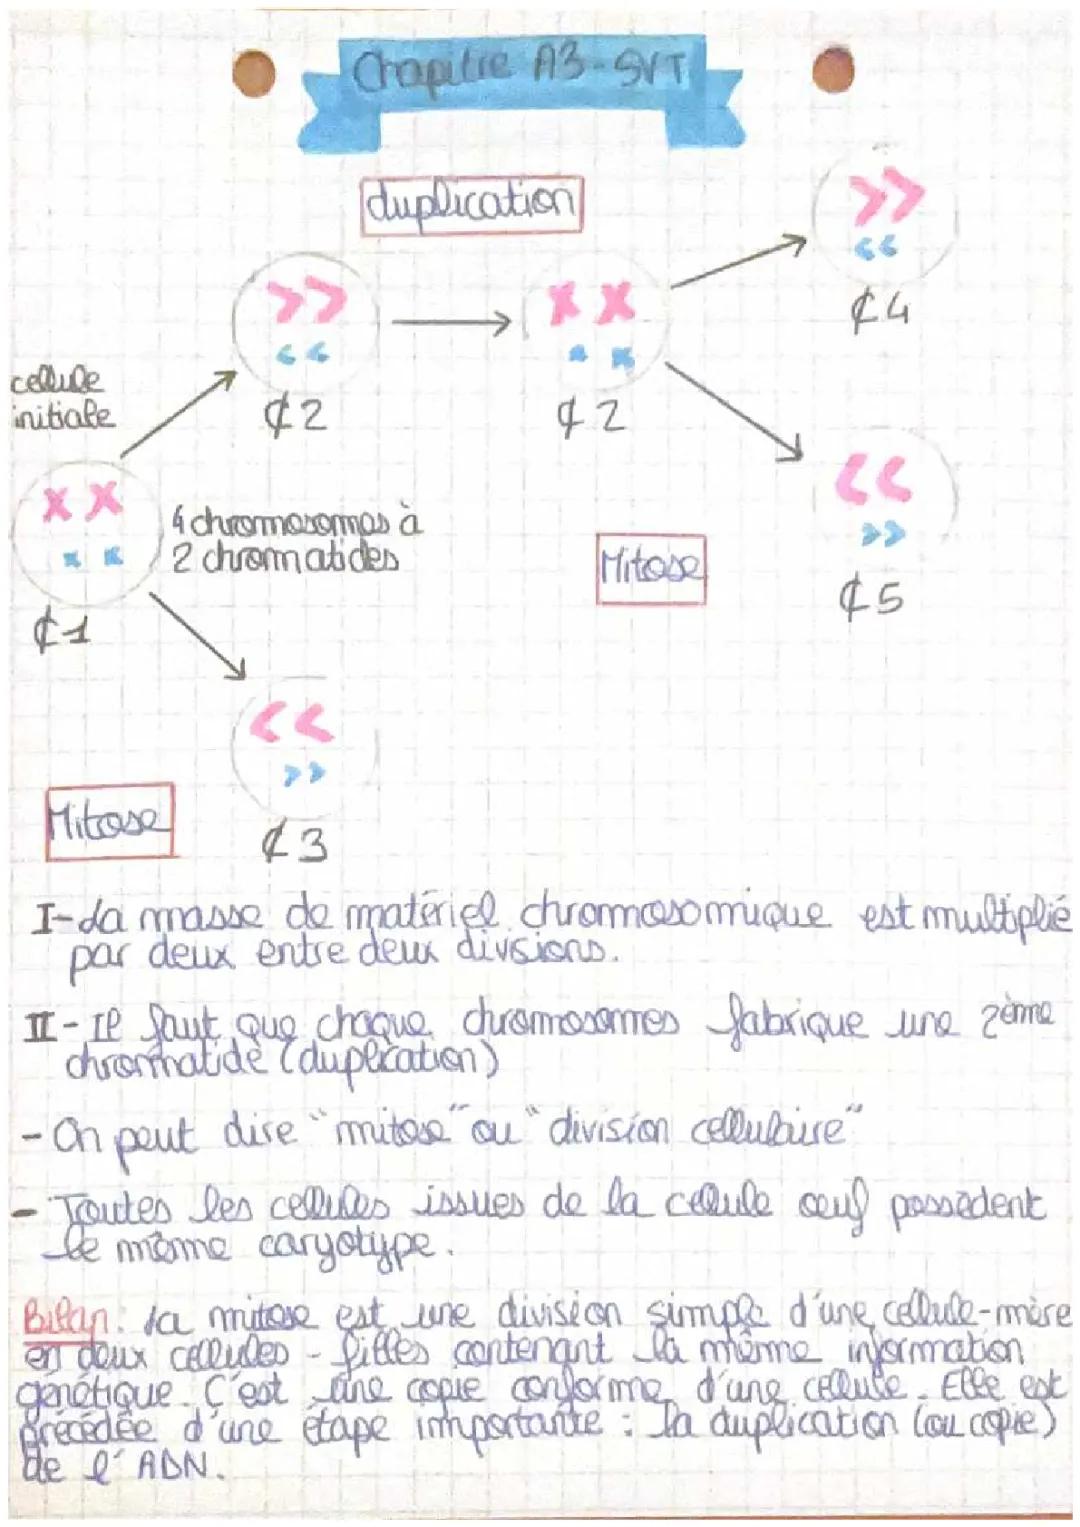 Chapitre A3-SVT
duplication
¢4
cellule
initiale
¢2
¢2
4 chromosomes à
2 chromatides
Mitose
¢5
¢1
Mitose
¢3
I-La masse de matériel chromosomique est multiplié
par deux entre deux divsions.
II-Il faut que chaque chromosomes fabrique une 2ème
chromatide (duplication)
- On peut dire "mitose" ou "division cellulaire"
- Toutes les cellules issues de la cellule œuf possèdent
le même caryotype.
Bilan: la mitose est une division simple d'une cellule-mère
en deux cellules-filles contenant la même information
génétique. C'est une copie conforme d'une cellule. Elle est
précédée d'une étape importante : la duplication (ou copie)
de l'ADN.